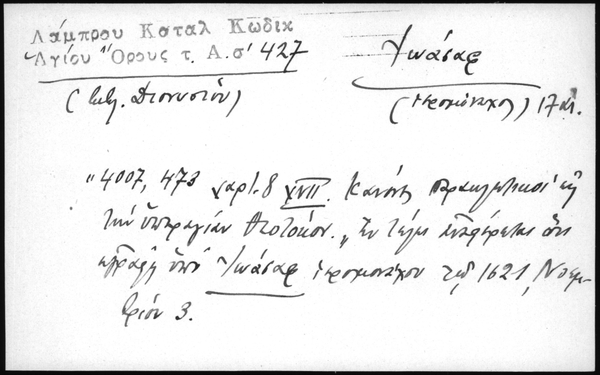 Λάμπρου Καταλ Κώδικ
Ἁγίου Ὄρους τ. Α. σ' 427
Ἰωάσαφ
(Διονυσίου)
(Ἱερομόναχος) 17 αἰ.
"4007, 473 χαρτ. 8 XVII. Κανόνες παρακλητικοὶ εἰς
τὴν ὑπεραγίαν Θεοτόκον. Ἐν τέλει ἀναφέρεται ὅτι
ἐγράφη ὑπὸ Ἰωάσαφ ἱερομονάχου τῷ 1621, Νοεμ-
βρίου 3.